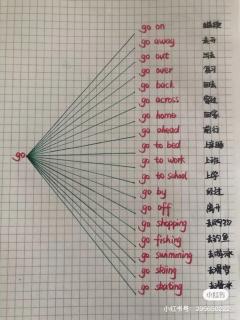 go
go on 继续
go away 走开
go out 出去
go over 复习
go back 回去
go across 穿过
go home 回家
go ahead 前行
go to bed 上床睡
go to work 上班
go to school 上学
go by 经过
go off 离开
go shopping 去购物
go fishing 去钓鱼
go swimming 去游泳
go skiing 去滑雪
go skating 去滑冰
小红书
小红书号: 295650222